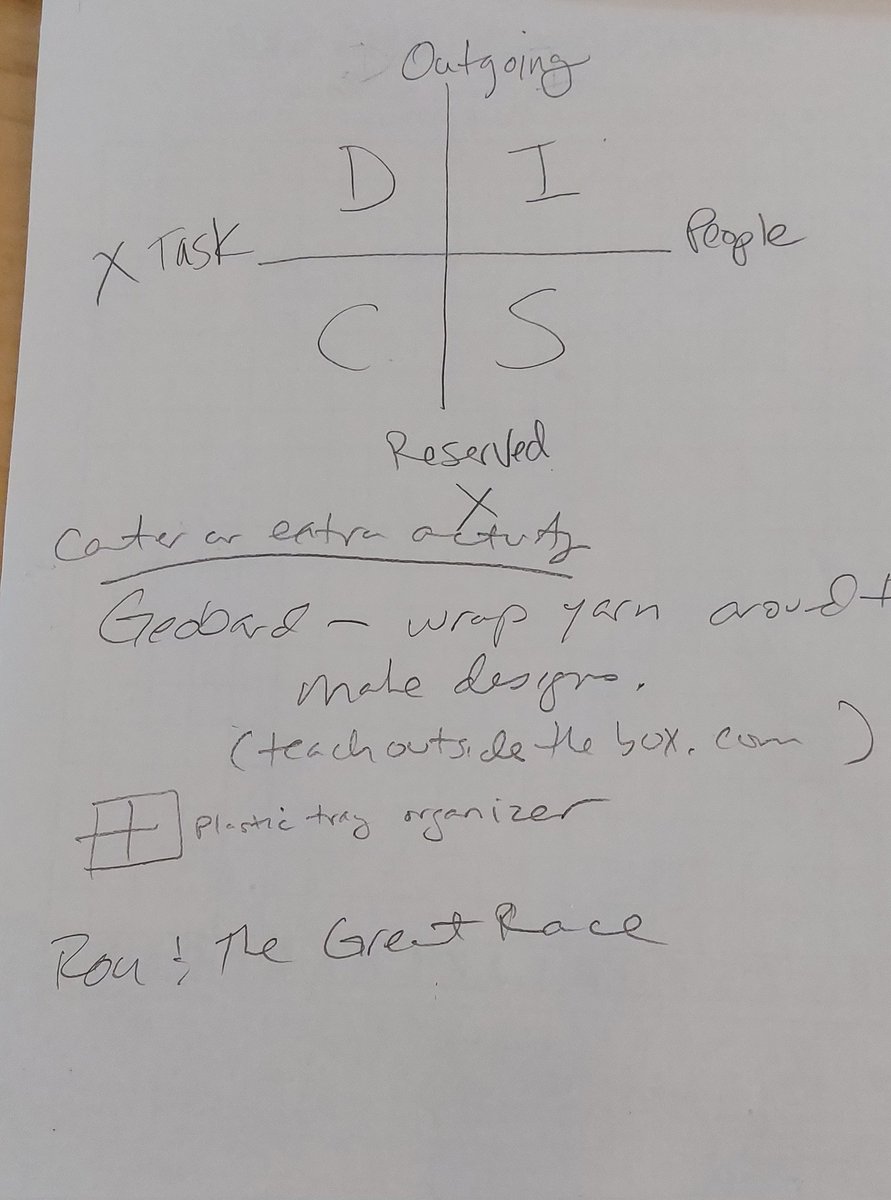 Outgoing
D I
X Task People
C S
Reserved
X
Center or extra activity
Geoboard - wrap yarn around +
make designs.
(teachoutsidethebox.com)
plastic tray organizer
: The Great Race